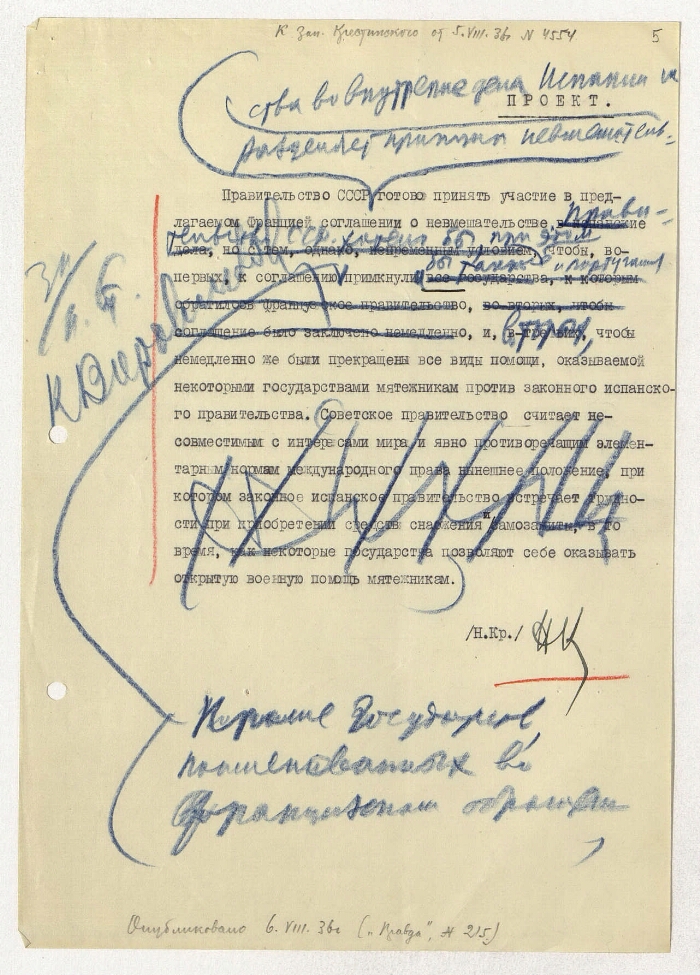 К зап. Крестинского от 5.VIII.36г N 4554
5
ства во внутренние дела Испании и
ПРОЕКТ.
разделяет принцип невмешатель-
Правительство СССР готово принять участие в пред-
лагаемом Францией соглашении о невмешательстве в испанские
Прави-
тельство СССР желало бы при этом
дела, но с тем, однако, непременным условием, чтобы, во-
бы также и Португалия
первых, к соглашению примкнули все государства, к которым
обратилось французское правительство, во-вторых, чтобы
соглашение было заключено немедленно, и, в-третьих, чтобы
вторых,
немедленно же были прекращены все виды помощи, оказываемой
некоторыми государствами мятежникам против законного испанско-
го правительства. Советское правительство считает не-
совместимым с интересами мира и явно противоречащим элемен-
тарным нормам международного права нынешнее положение, при
котором законное испанское правительство встречает трудно-
сти при приобретении средств снаряжения и самозащиты, в то
время, как некоторые государства позволяют себе оказывать
открытую военную помощь мятежникам.
/Н.Кр./ НК
К Ворошилов
Кроме государств,
поименованных во
французском обращении
,
Опубликовано 6.VIII.36г ("Правда", N 215)